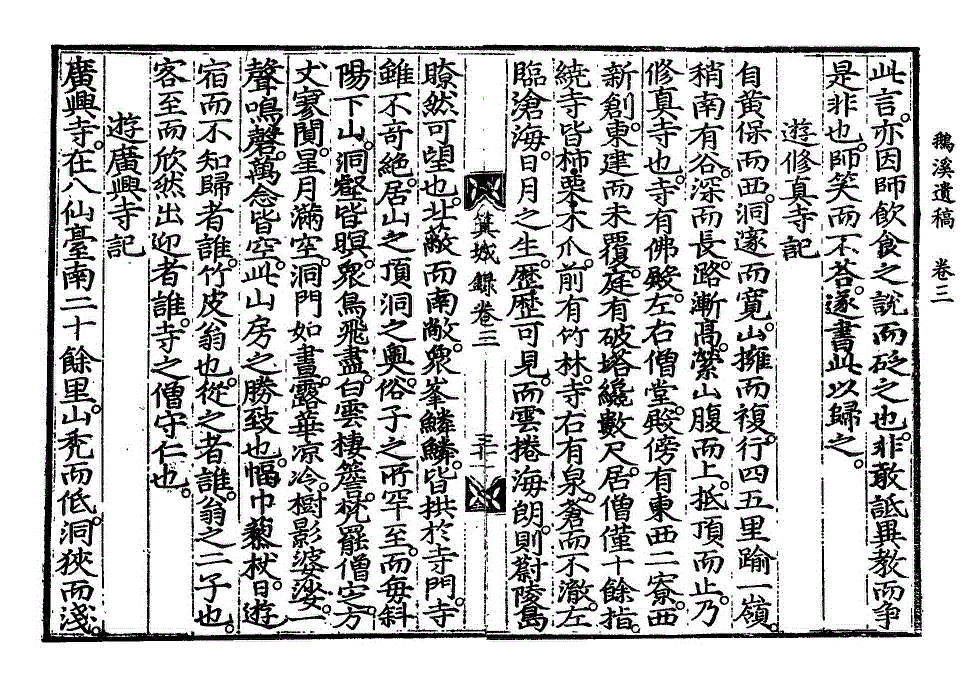 鵝溪遺稿　卷三
此言。亦因師飮食之說而砭之也。非敢詆異教而爭
是非也。師笑而不答。遂書此以歸之。
遊修真寺記
自黃保而西。洞邃而寬。山擁而複。行四五里踰一嶺。
稍南有谷。深而長。路漸高。縈山腹而上。抵頂而止。乃
修真寺也。寺有佛殿。左右僧堂。殿傍有東西二寮。西
新創。東建而未覆。庭有破塔纔數尺。居僧僅十餘指。
繞寺皆柿栗木瓜。前有竹林。寺右有泉。滄而不澈。左
臨滄海。日月之生。歷歷可見。而雲捲海朗。則蔚陵島
箕城錄卷三
瞭然可望也。北蔽而南敞。衆峯鱗鱗。皆拱於寺門。寺
雖不奇絕。居山之頂洞之奧。俗子之所罕至。而每斜
陽下山。洞壑皆暝。衆鳥飛盡。白雲棲簷。梵罷僧空。方
丈寂聞。星月滿空。洞門如晝。露華凉冷。樹影婆娑。一
聲鳴磬。萬念皆空。此山房之勝致也。幅巾藜杖。日遊
宿而不知歸者誰。竹皮翁也。從之者誰。翁之二子也。
客至而欣然出迎者誰。寺之僧守仁也。
遊廣興寺記
廣興寺。在八仙臺南二十餘里。山禿而低。洞狹而淺。